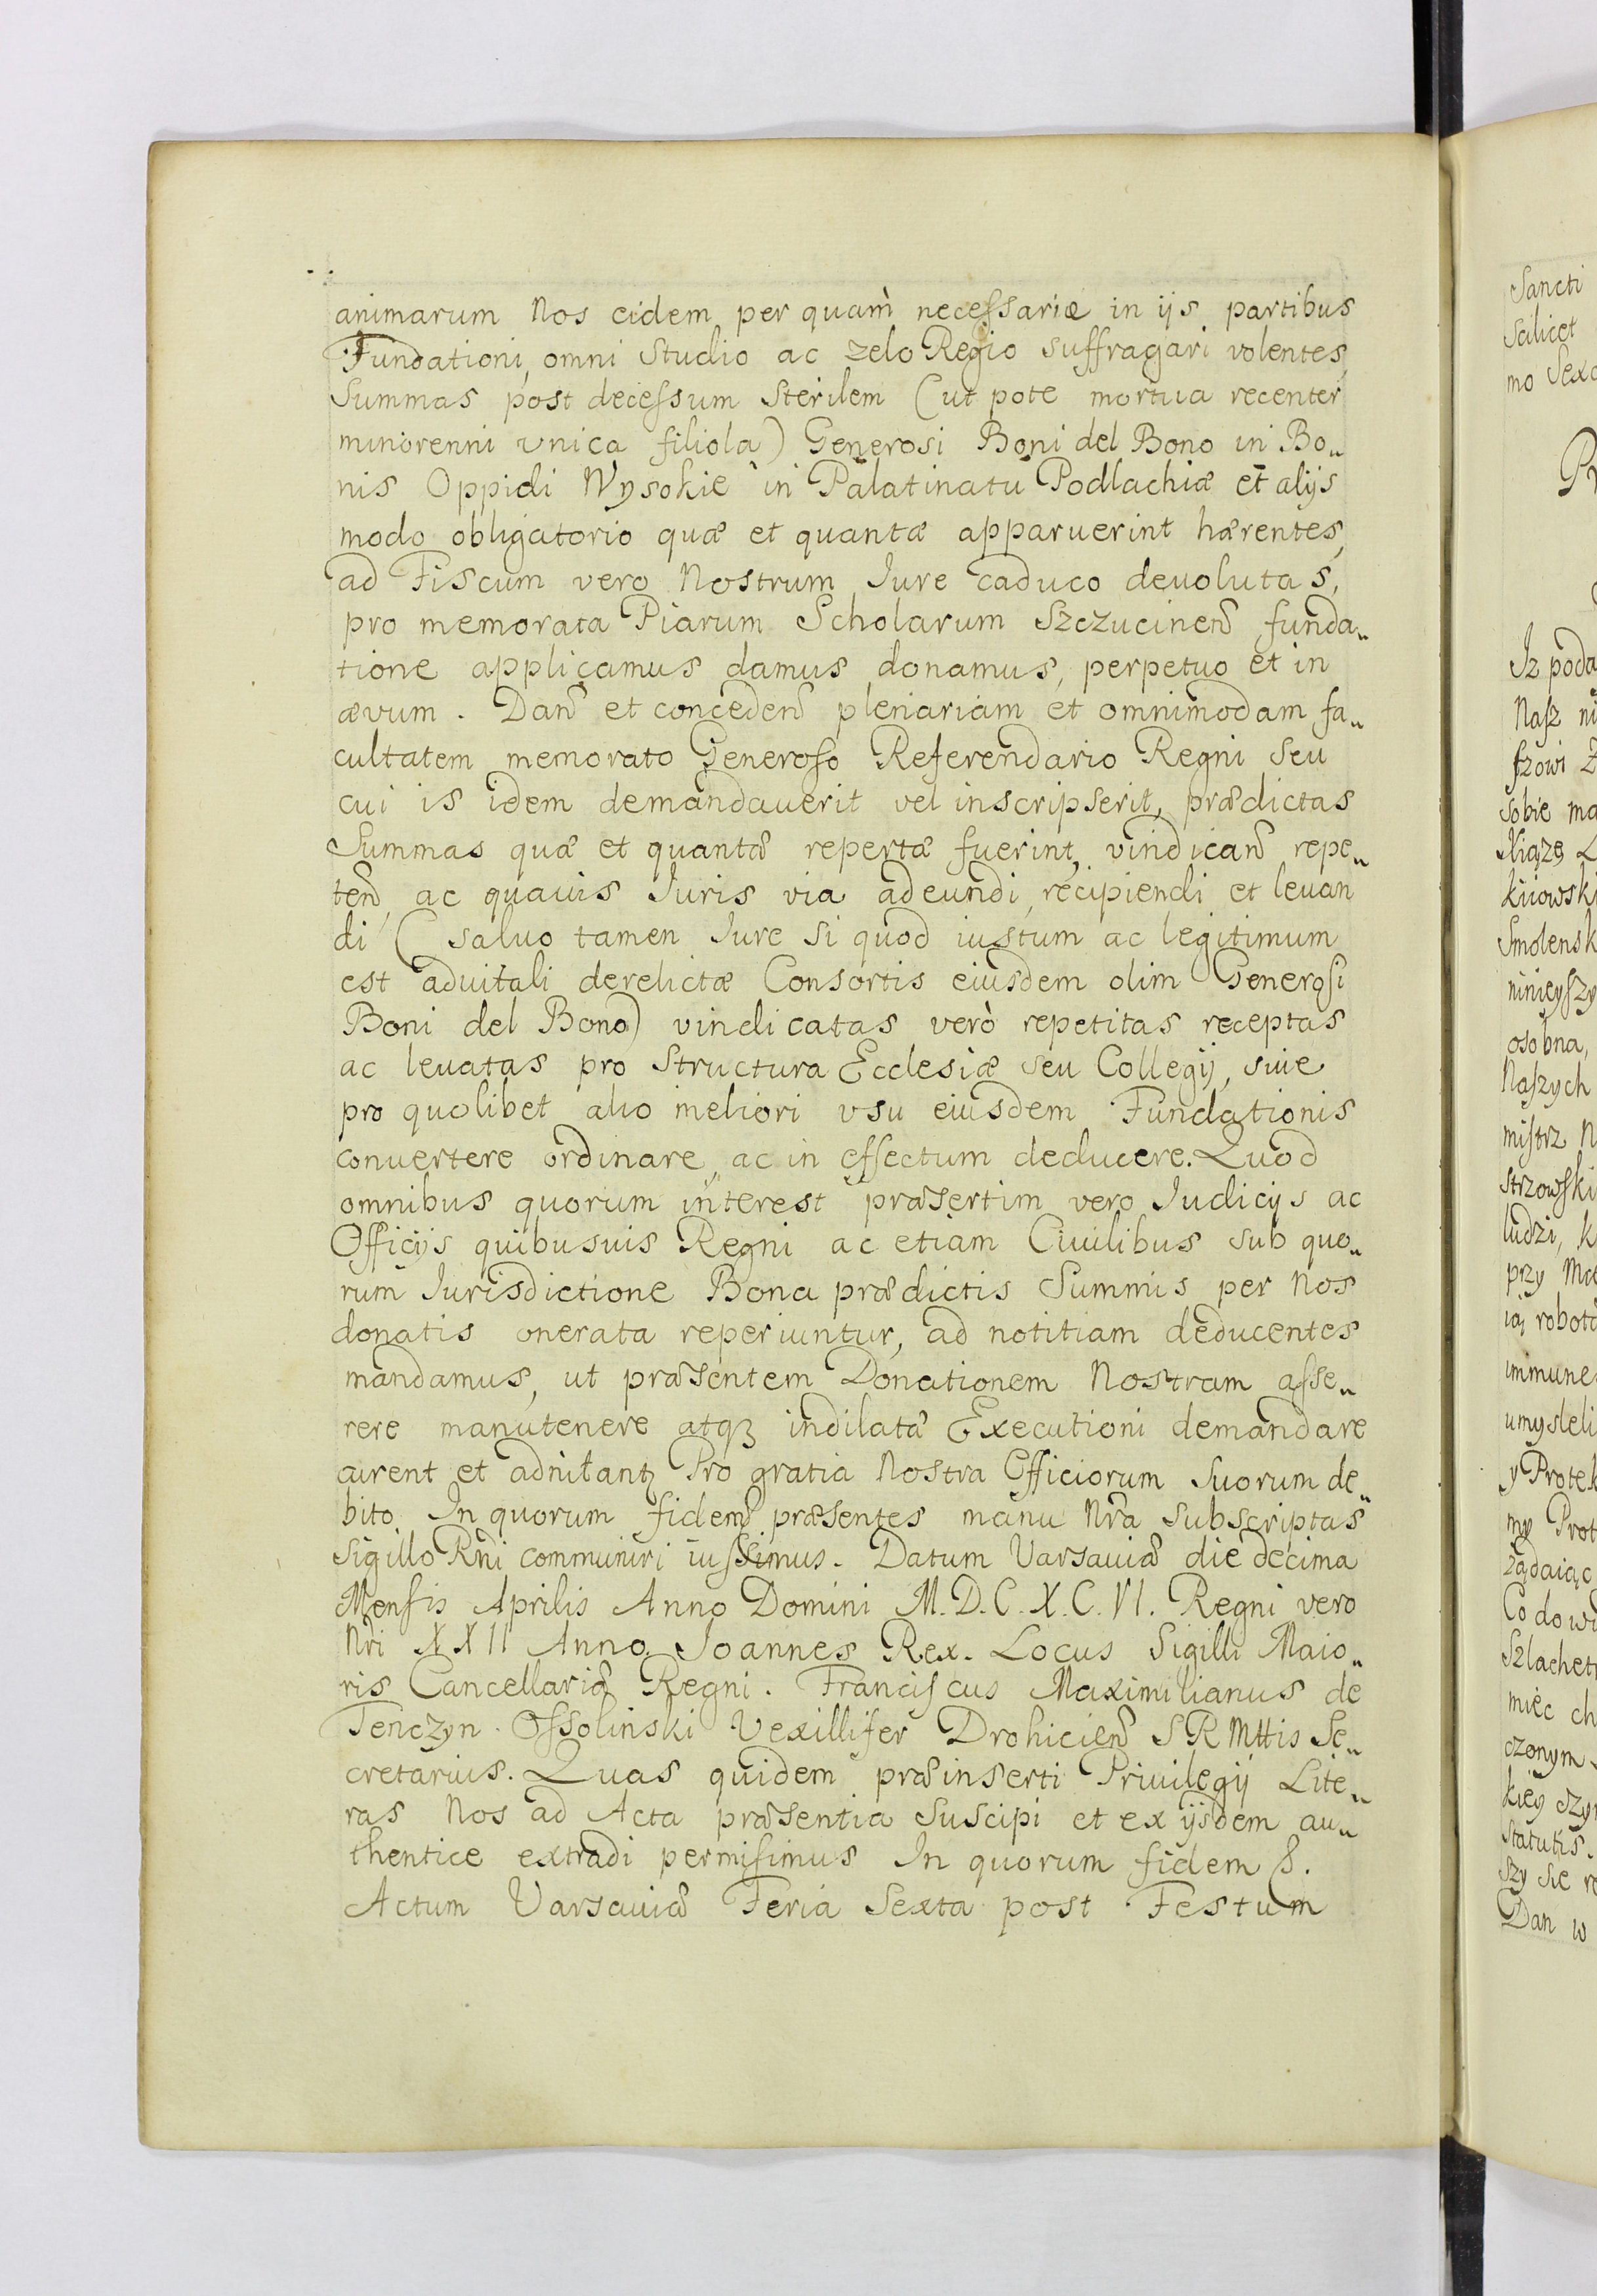 animarum Nos eidem per quam̀ necessariæ in ijs partibus
Fundationi, omni Studio ac zelo Regio suffragari volentes,
Summas post decessum Sterilem (ut pote mortua recenter
minorenni vnica filiola) Generosi Boni del Bono in Bo„
nis Oppidi Wysokie in Palatinatu Podlachiæ et alijs
modo obligatorio quæ et quantæ apparuerint hærentes,
ad Fiscum vero Nostrum Iure caduco deuolutas,
pro memorata Piarum Scholarum Szczucinen̄ funda„
tione applicamus damus donamus, perpetuo et in
ævum. Dan̄ et conceden̄ plenariam et omnimodam fa„
cultatem memorato Generoso Referendario Regni seu
cui is idem demandauerit vel inscripserit, prædictas
Summas quæ et quantæ repertæ fuerint, vindican̄ repe„
ten̄, ac quauis Iuris via adeundi, recipiendi et leuan
di (saluo tamen Iure si quod iustum ac legitimum
est aduitali derelictæ Consortis eiusdem olim Generosi
Boni del Bono) vindicatas verò repetitas receptas
ac leuatas pro Structura Ecclesiæ seu Collegij, siue
pro quolibet alio meliori vsu eiusdem Fundationis
conuertere ordinare, ac in effectum deducere. Quod
omnibus quorum interest præsertim vero Iudicijs ac
Officijs quibusuis Regni ac etiam Ciuilibus sub quo„
rum Iurisdictione Bona prædictis Summis per Nos
donatis onerata reperiuntur, ad notitiam deducentes
mandamus, ut præsentem Donationem Nostram asse„
rere manutenere atqꝫ indilatæ Executioni demandare
curent et adnitantꝫ Pro gratia Nostra Officiorum suorum de„
bito. In quorum fidem præsentes manu Nr̄a Subscriptas
Sigillo Rn̄i communiri iussimus. Datum Varsauiæ die decima
Mensis Aprilis Anno Domini M.D.C.X.C.VI. Regni vero
Nr̄i XXII Anno. Joannes Rex. Locus Sigilli Maio„
ris Cancellariæ Regni. Franciscus Maximilianus de
Tenczyn Ossolinski Vexillifer Drohicien̄ S R Mttis Se„
cretarius. Quas quidem præinserti Priuilegij Lite„
ras Nos ad Acta præsentia Suscipi et ex ijsdem au„
thentice extradi permisimus In quorum fidem &.
Actum Varsauiæ Feria Sexta post Festum
Sancti
Scilicet
mo Sexa
Pr
Jz poda
Nasz ni
szowi Z
sobie ma
Xiązę L
kiiowski
Smolensk
ninieyszy
osobna,
Naszych
mistrz N
strzowski
ludzi, k
przy
ią robotą
immunes
umysleli
y Protek
my Prot
ządaiąc
Co do w
Szlachet
miec ch
czonym
kiey
Statutis.
szy się
Dan w